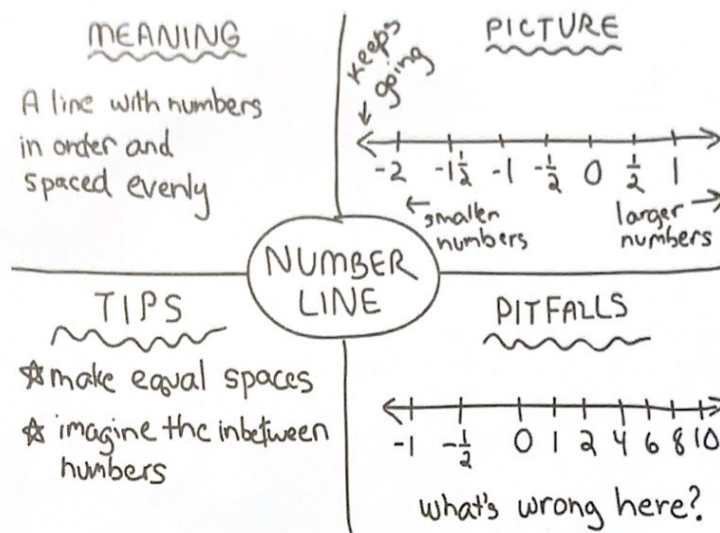 MEANING
A line with numbers
in order and
spaced evenly
PICTURE
keeps
going
-2 -1½ -1 -½ 0 ½ 1
←smaller
numbers
larger→
numbers
NUMBER
LINE
TIPS
☆make equal spaces
☆ imagine the inbetween
numbers
PITFALLS
-1 -½ 0 1 2 4 6 8 10
what's wrong here?